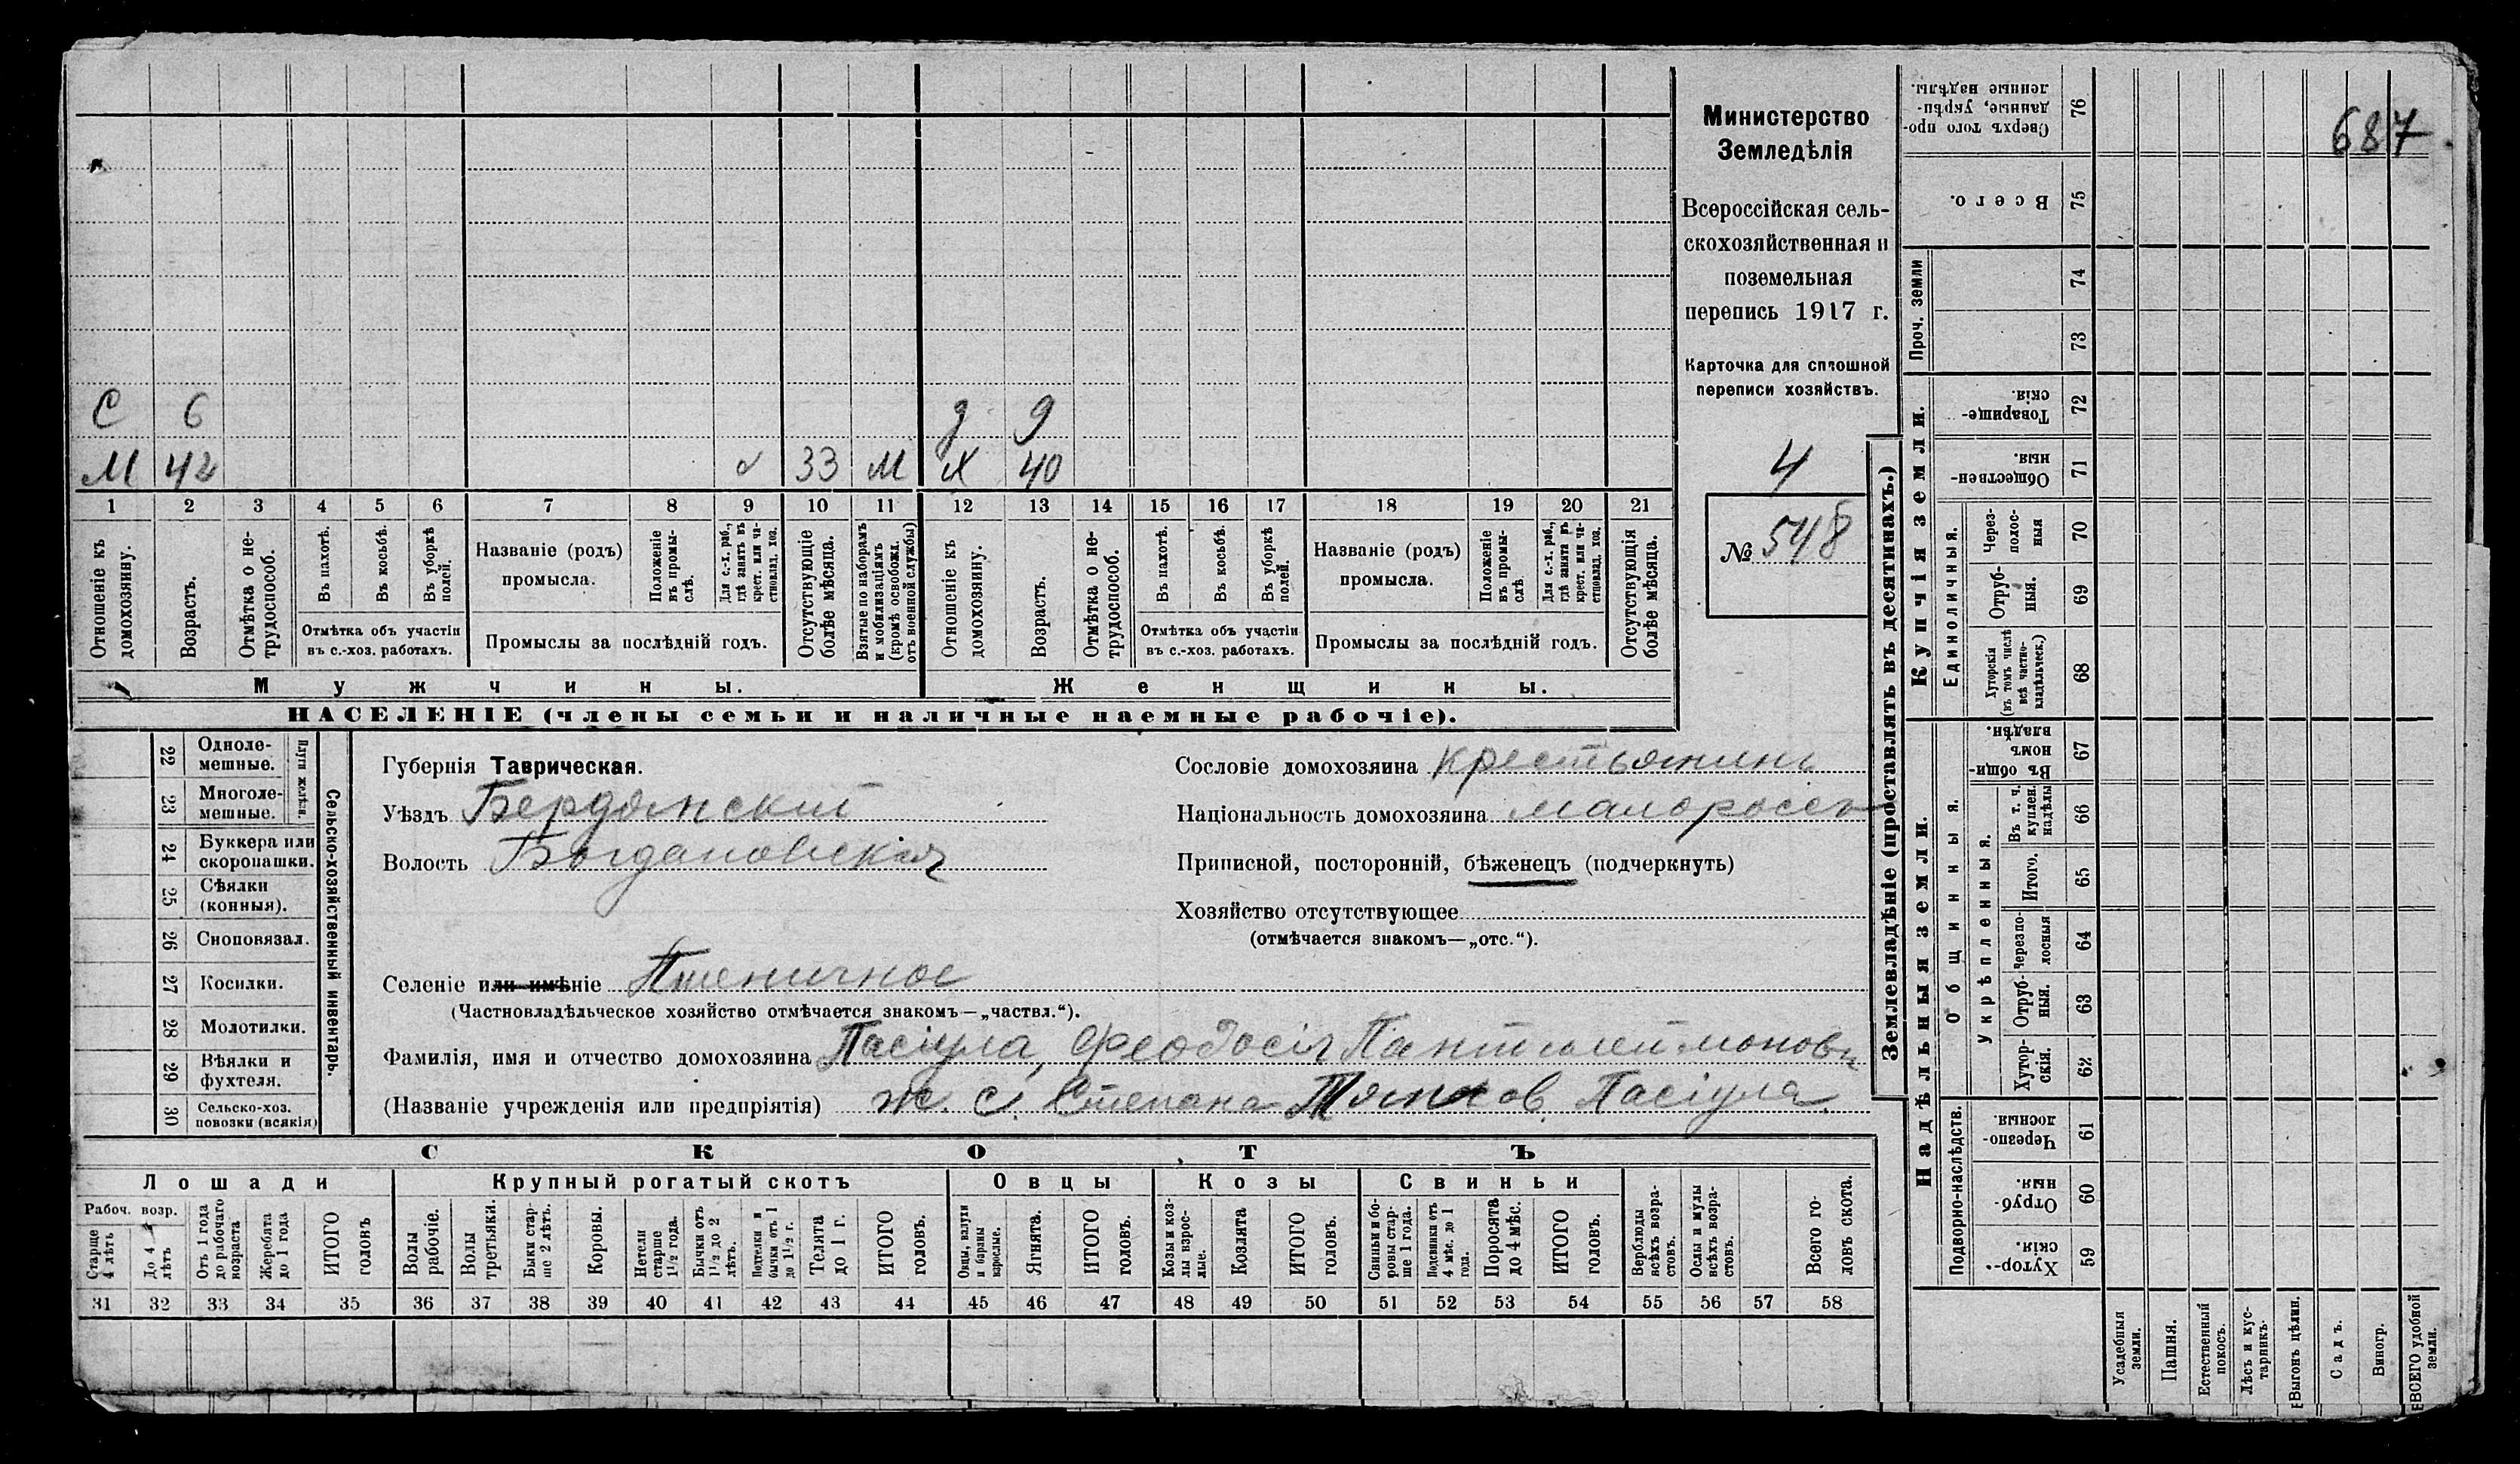 687
Министерство
Земледѣлія
Всероссійская сель-
скохозяйственная и
поземельная
перепись 1917 г.
Карточка для сплошной
переписи хозяйствъ.
4
№ 548
С 6 д 9
М 42 33 М Х 40
1 2 3 4 5 6 7 8 9 10 11 12 13 14 15 16 17 18 19 20 21
Отношеніе къ домохозяину.
Возрастъ.
Отмѣтка о не-трудоспособ.
Въ пахотѣ.
Въ косьбѣ.
Въ уборкѣ полей.
Отмѣтка объ участіи
въ с.-хоз. работахъ.
Названіе (родъ)
промысла.
Положеніе въ промы-слѣ.
Для с.-х. раб., гдѣ занятъ въ крест. или ча-стновлад. хоз.
Промыслы за послѣдній годъ.
Отсутствующіе болѣе мѣсяца.
Взятые по наборамъ и мобилизаціямъ (кромѣ освобожд. отъ военной службы)
Отношеніе къ домохозяину.
Возрастъ.
Отмѣтка о не-трудоспособ.
Въ пахотѣ.
Въ косьбѣ.
Въ уборкѣ полей.
Отмѣтка объ участіи
въ с.-хоз. работахъ.
Названіе (родъ)
промысла.
Положеніе въ промы-слѣ.
Для с.-х. раб., гдѣ занята въ крест. или ча-стновлад. хоз.
Промыслы за послѣдній годъ.
Отсутствующія болѣе мѣсяца.
Мужчины. Женщины.
НАСЕЛЕНІЕ (члены семьи и наличные наемные рабочіе).
22 Одноле-мешные.
23 Многоле-мешные.
Плуги желѣзн.
24 Буккера или скоропашки.
25 Сѣялки (конныя).
26 Сноповязал.
27 Косилки.
28 Молотилки.
29 Вѣялки и фухтеля.
30 Сельско-хоз. повозки (всякія)
Сельско-хозяйственный инвентарь.
Губернія Таврическая.
Уѣздъ Бердянский
Волость Богдановская
Селеніе или имѣніе Пшеничное
(Частновладѣльческое хозяйство отмѣчается знакомъ—„частвл.“).
Фамилія, имя и отчество домохозяина Пасіула, Феодосія Пантилеймонова
(Названіе учрежденія или предпріятія) ж. с. Степана Пасіула.
Сословіе домохозяина крестьянинъ
Національность домохозяина малоросіян
Приписной, посторонній, бѣженецъ (подчеркнуть)
Хозяйство отсутствующее
(отмѣчается знакомъ—„отс.“).
СКОТЪ
Лошади Крупный рогатый скотъ Овцы Козы Свиньи
Рабоч. возр.
Старше 4 лѣтъ
До 4 лѣтъ
Отъ 1 года до рабочаго возраста
Жеребята до 1 года
ИТОГО головъ
Волы рабочіе.
Волы третьяки.
Быки стар-ше 2 лѣтъ.
Коровы.
Нетели старше 1½ года.
Бычки отъ 1½ до 2 лѣтъ.
Подтелки и бычки отъ 1 до 1½ г.
Телята до 1 г.
ИТОГО головъ.
Овцы, валухи и бараны взрослые.
Ягнята.
ИТОГО головъ.
Козы и коз-лы взрос-лые.
Козлята
ИТОГО головъ.
Свиньи и бо-ровы стар-ше 1 года.
Подсвинки отъ 4 мѣс. до 1 года.
Поросята до 4 мѣс.
ИТОГО головъ.
Верблюды всѣхъ возра-стовъ.
Ослы и мулы всѣхъ возра-стовъ.
Всего го-ловъ скота.
31 32 33 34 35 36 37 38 39 40 41 42 43 44 45 46 47 48 49 50 51 52 53 54 55 56 57 58
Землевладѣніе (проставлять въ десятинахъ.)
Купчія земли.
Надѣльныя земли.
Сверхъ того про-данные, укрѣп-ленные надѣлы. 76
Всего. 75
Проч. земли
74
73
Товарище-скія. 72
Обществен-ныя. 71
Единоличныя.
Черезполос-ныя 70
Отруб-ныя. 69
Хуторскія (въ томъ числѣ всѣ частно-владѣльческ.) 68
Общинныя.
Въ общин-номъ владѣн. 67
Укрѣпленныя.
Въ т. ч. куплен. надѣлы 66
Итого. 65
Черезпо-лосныя 64
Отруб-ныя. 63
Хутор-скія. 62
Подворно-наслѣдств.
Черезпо-лосныя 61
Отруб-ныя. 60
Хутор-скія. 59
Усадебныя земли.
Пашня.
Естественный покосъ.
Лѣсъ и кус-тарникъ.
Выгонъ цѣлин.
Садъ.
Виногр.
ВСЕГО удобной земли.